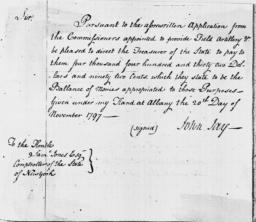 Sir,
Pursuant to the aforewritten Application from
the Commissioners appointed to provide Field Artillery &c
be pleased to direct the Treasurer of the State to pay to
them four thousand four hundred and thirty two Dol-
lars and ninety two Cents, which they state to be the
Ballance of Monies appropriated to those Purposes—
Given under my Hand at Albany the 20th Day of
November 1797—
(signed) John Jay—
To the Honble
Saml Jones Esqr
Comptroller of the State
of New York